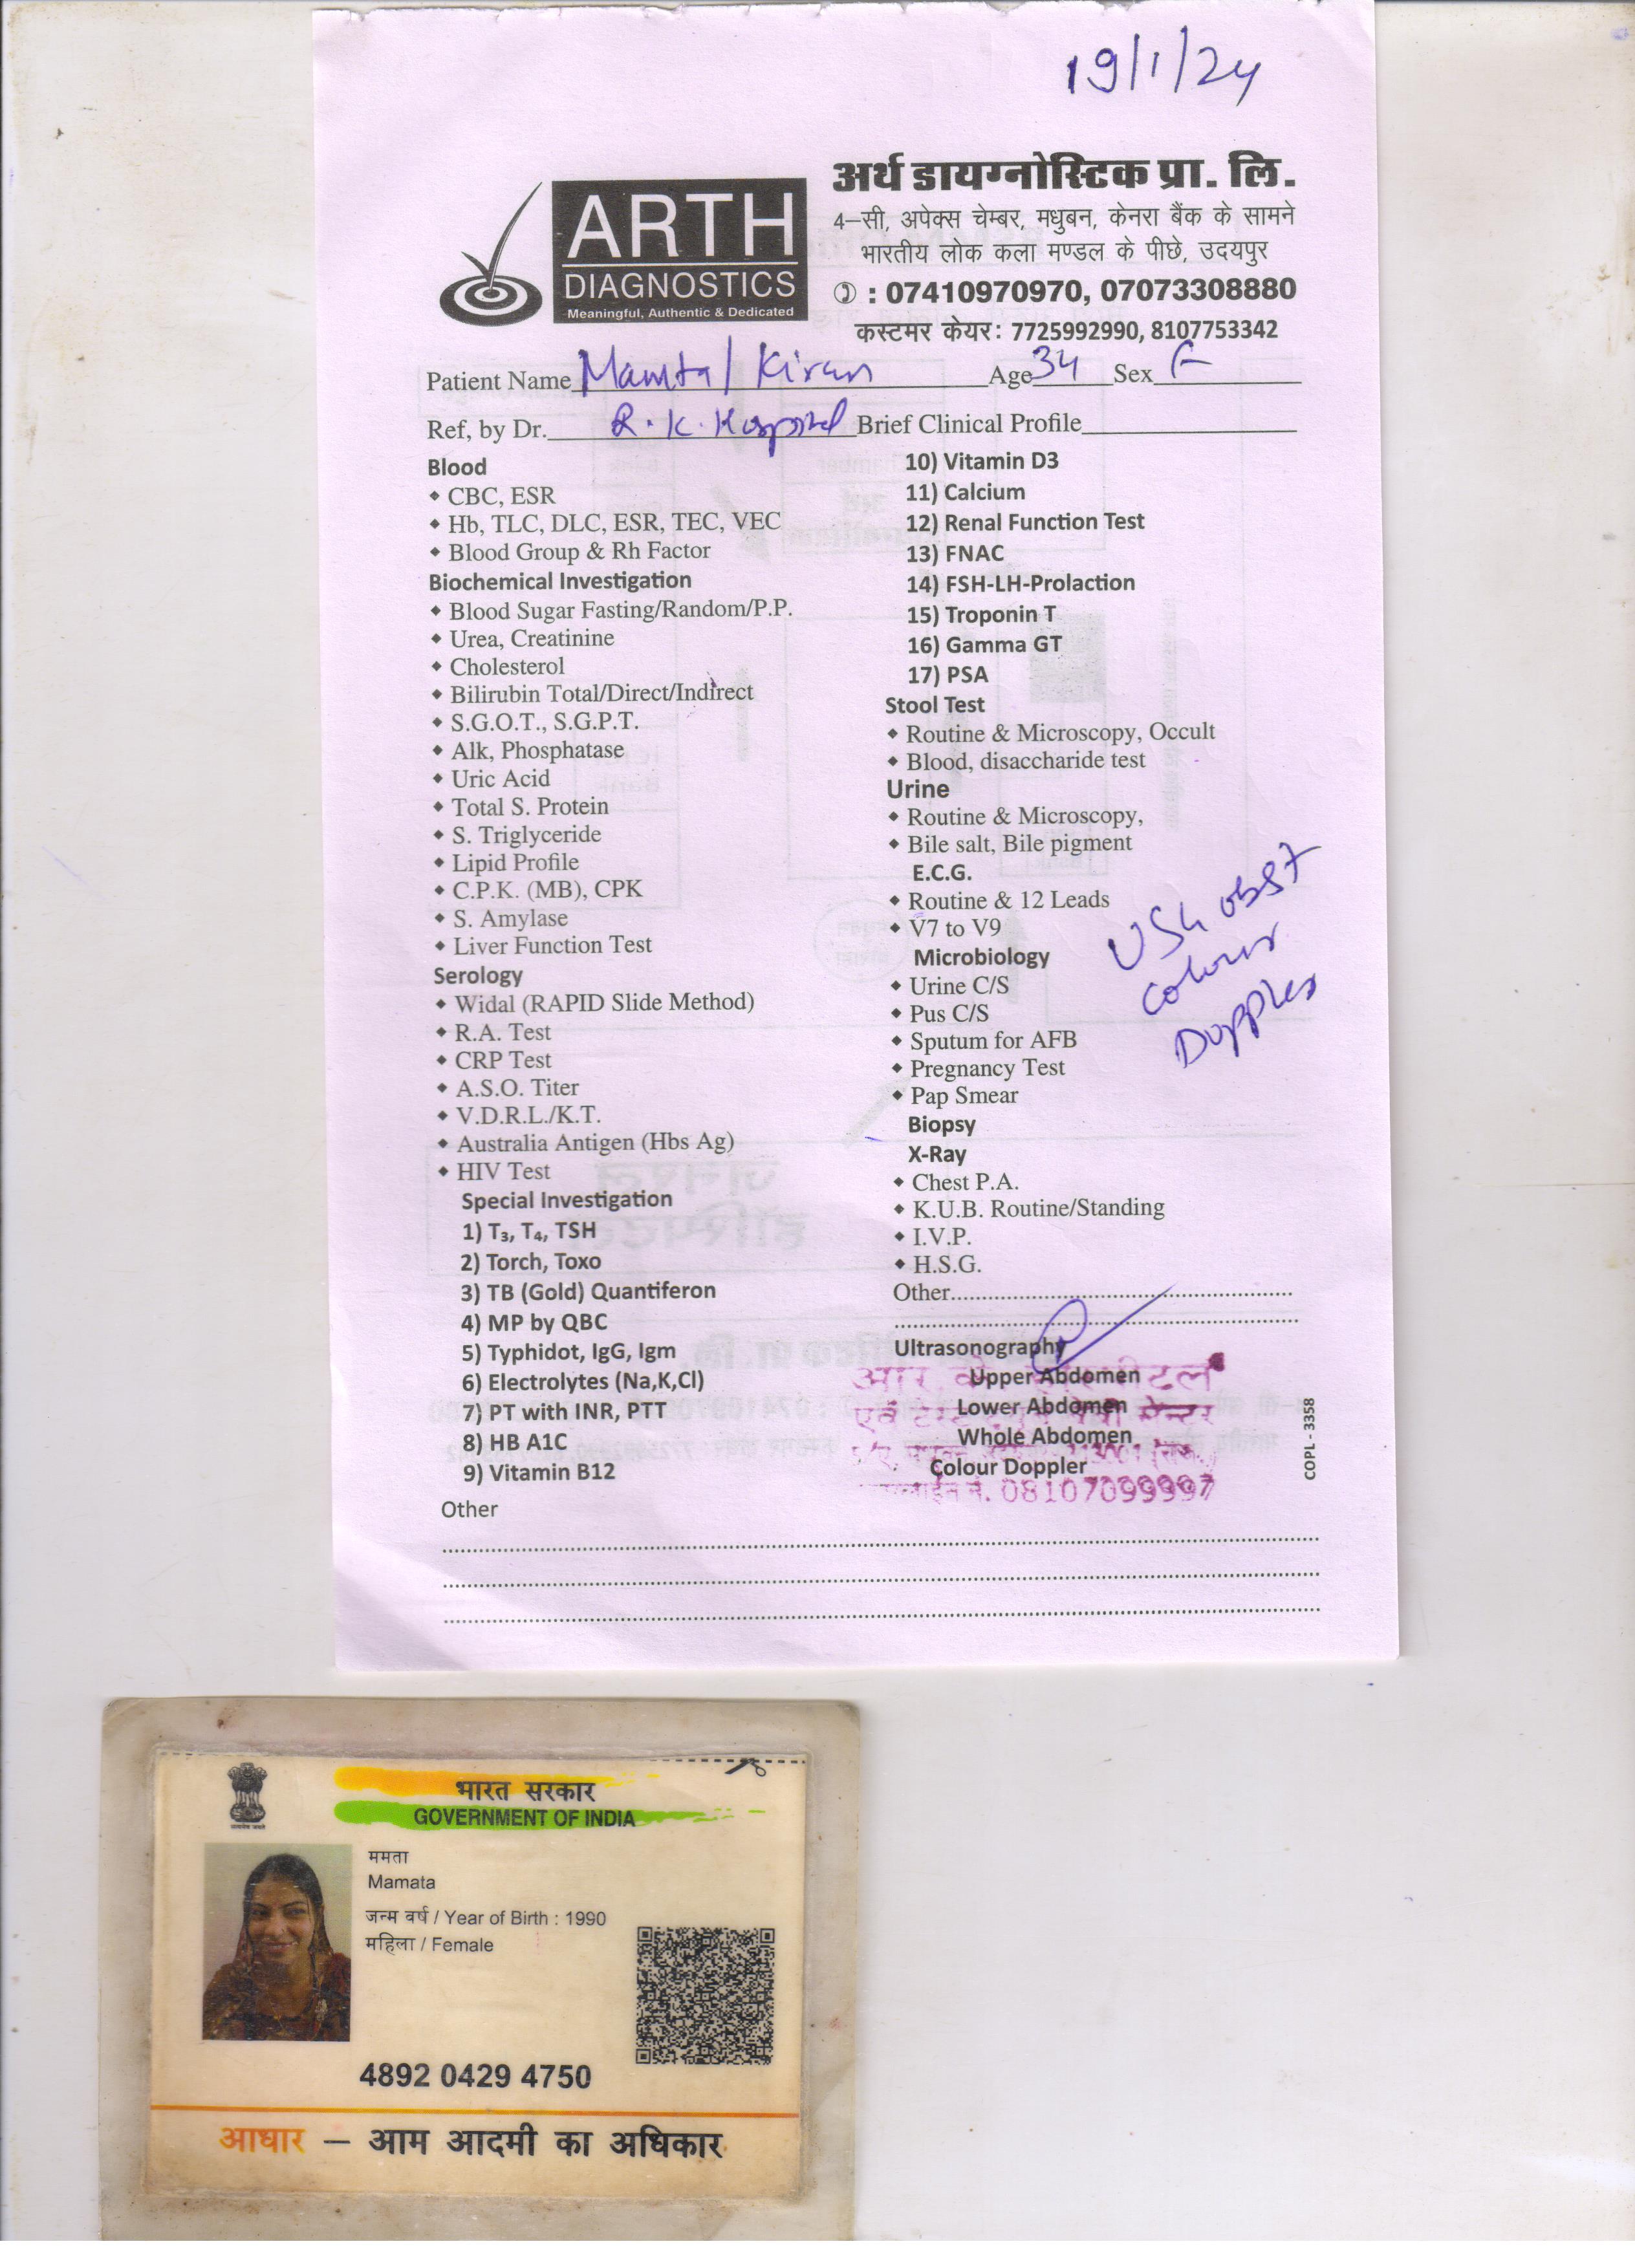 19/1/24
ARTH
DIAGNOSTICS
Meaningful, Authentic & Dedicated
अर्थ डायग्नोस्टिक प्रा. लि.
4–सी, अपेक्स चेम्बर, मधुबन, केनरा बैंक के सामने
भारतीय लोक कला मण्डल के पीछे, उदयपुर
: 07410970970, 07073308880
कस्टमर केयर: 7725992990, 8107753342
Patient Name Mamta / Kiran Age 34 Sex F
Ref, by Dr. R.K. Hospital Brief Clinical Profile
Blood
CBC, ESR
Hb, TLC, DLC, ESR, TEC, VEC
Blood Group & Rh Factor
Biochemical Investigation
Blood Sugar Fasting/Random/P.P.
Urea, Creatinine
Cholesterol
Bilirubin Total/Direct/Indirect
S.G.O.T., S.G.P.T.
Alk, Phosphatase
Uric Acid
Total S. Protein
S. Triglyceride
Lipid Profile
C.P.K. (MB), CPK
S. Amylase
Liver Function Test
Serology
Widal (RAPID Slide Method)
R.A. Test
CRP Test
A.S.O. Titer
V.D.R.L./K.T.
Australia Antigen (Hbs Ag)
HIV Test
Special Investigation
1) T₃, T₄, TSH
2) Torch, Toxo
3) TB (Gold) Quantiferon
4) MP by QBC
5) Typhidot, IgG, Igm
6) Electrolytes (Na,K,Cl)
7) PT with INR, PTT
8) HB A1C
9) Vitamin B12
Other
10) Vitamin D3
11) Calcium
12) Renal Function Test
13) FNAC
14) FSH-LH-Prolaction
15) Troponin T
16) Gamma GT
17) PSA
Stool Test
Routine & Microscopy, Occult
Blood, disaccharide test
Urine
Routine & Microscopy,
Bile salt, Bile pigment
E.C.G.
Routine & 12 Leads
V7 to V9
Microbiology
Urine C/S
Pus C/S
Sputum for AFB
Pregnancy Test
Pap Smear
Biopsy
X-Ray
Chest P.A.
K.U.B. Routine/Standing
I.V.P.
H.S.G.
Other
Ultrasonography
Upper Abdomen
Lower Abdomen
Whole Abdomen
Colour Doppler
USG obst
colour
Doppler
08107099997
COPL - 3358
भारत सरकार
GOVERNMENT OF INDIA
ममता
Mamata
जन्म वर्ष / Year of Birth : 1990
महिला / Female
4892 0429 4750
आधार – आम आदमी का अधिकार